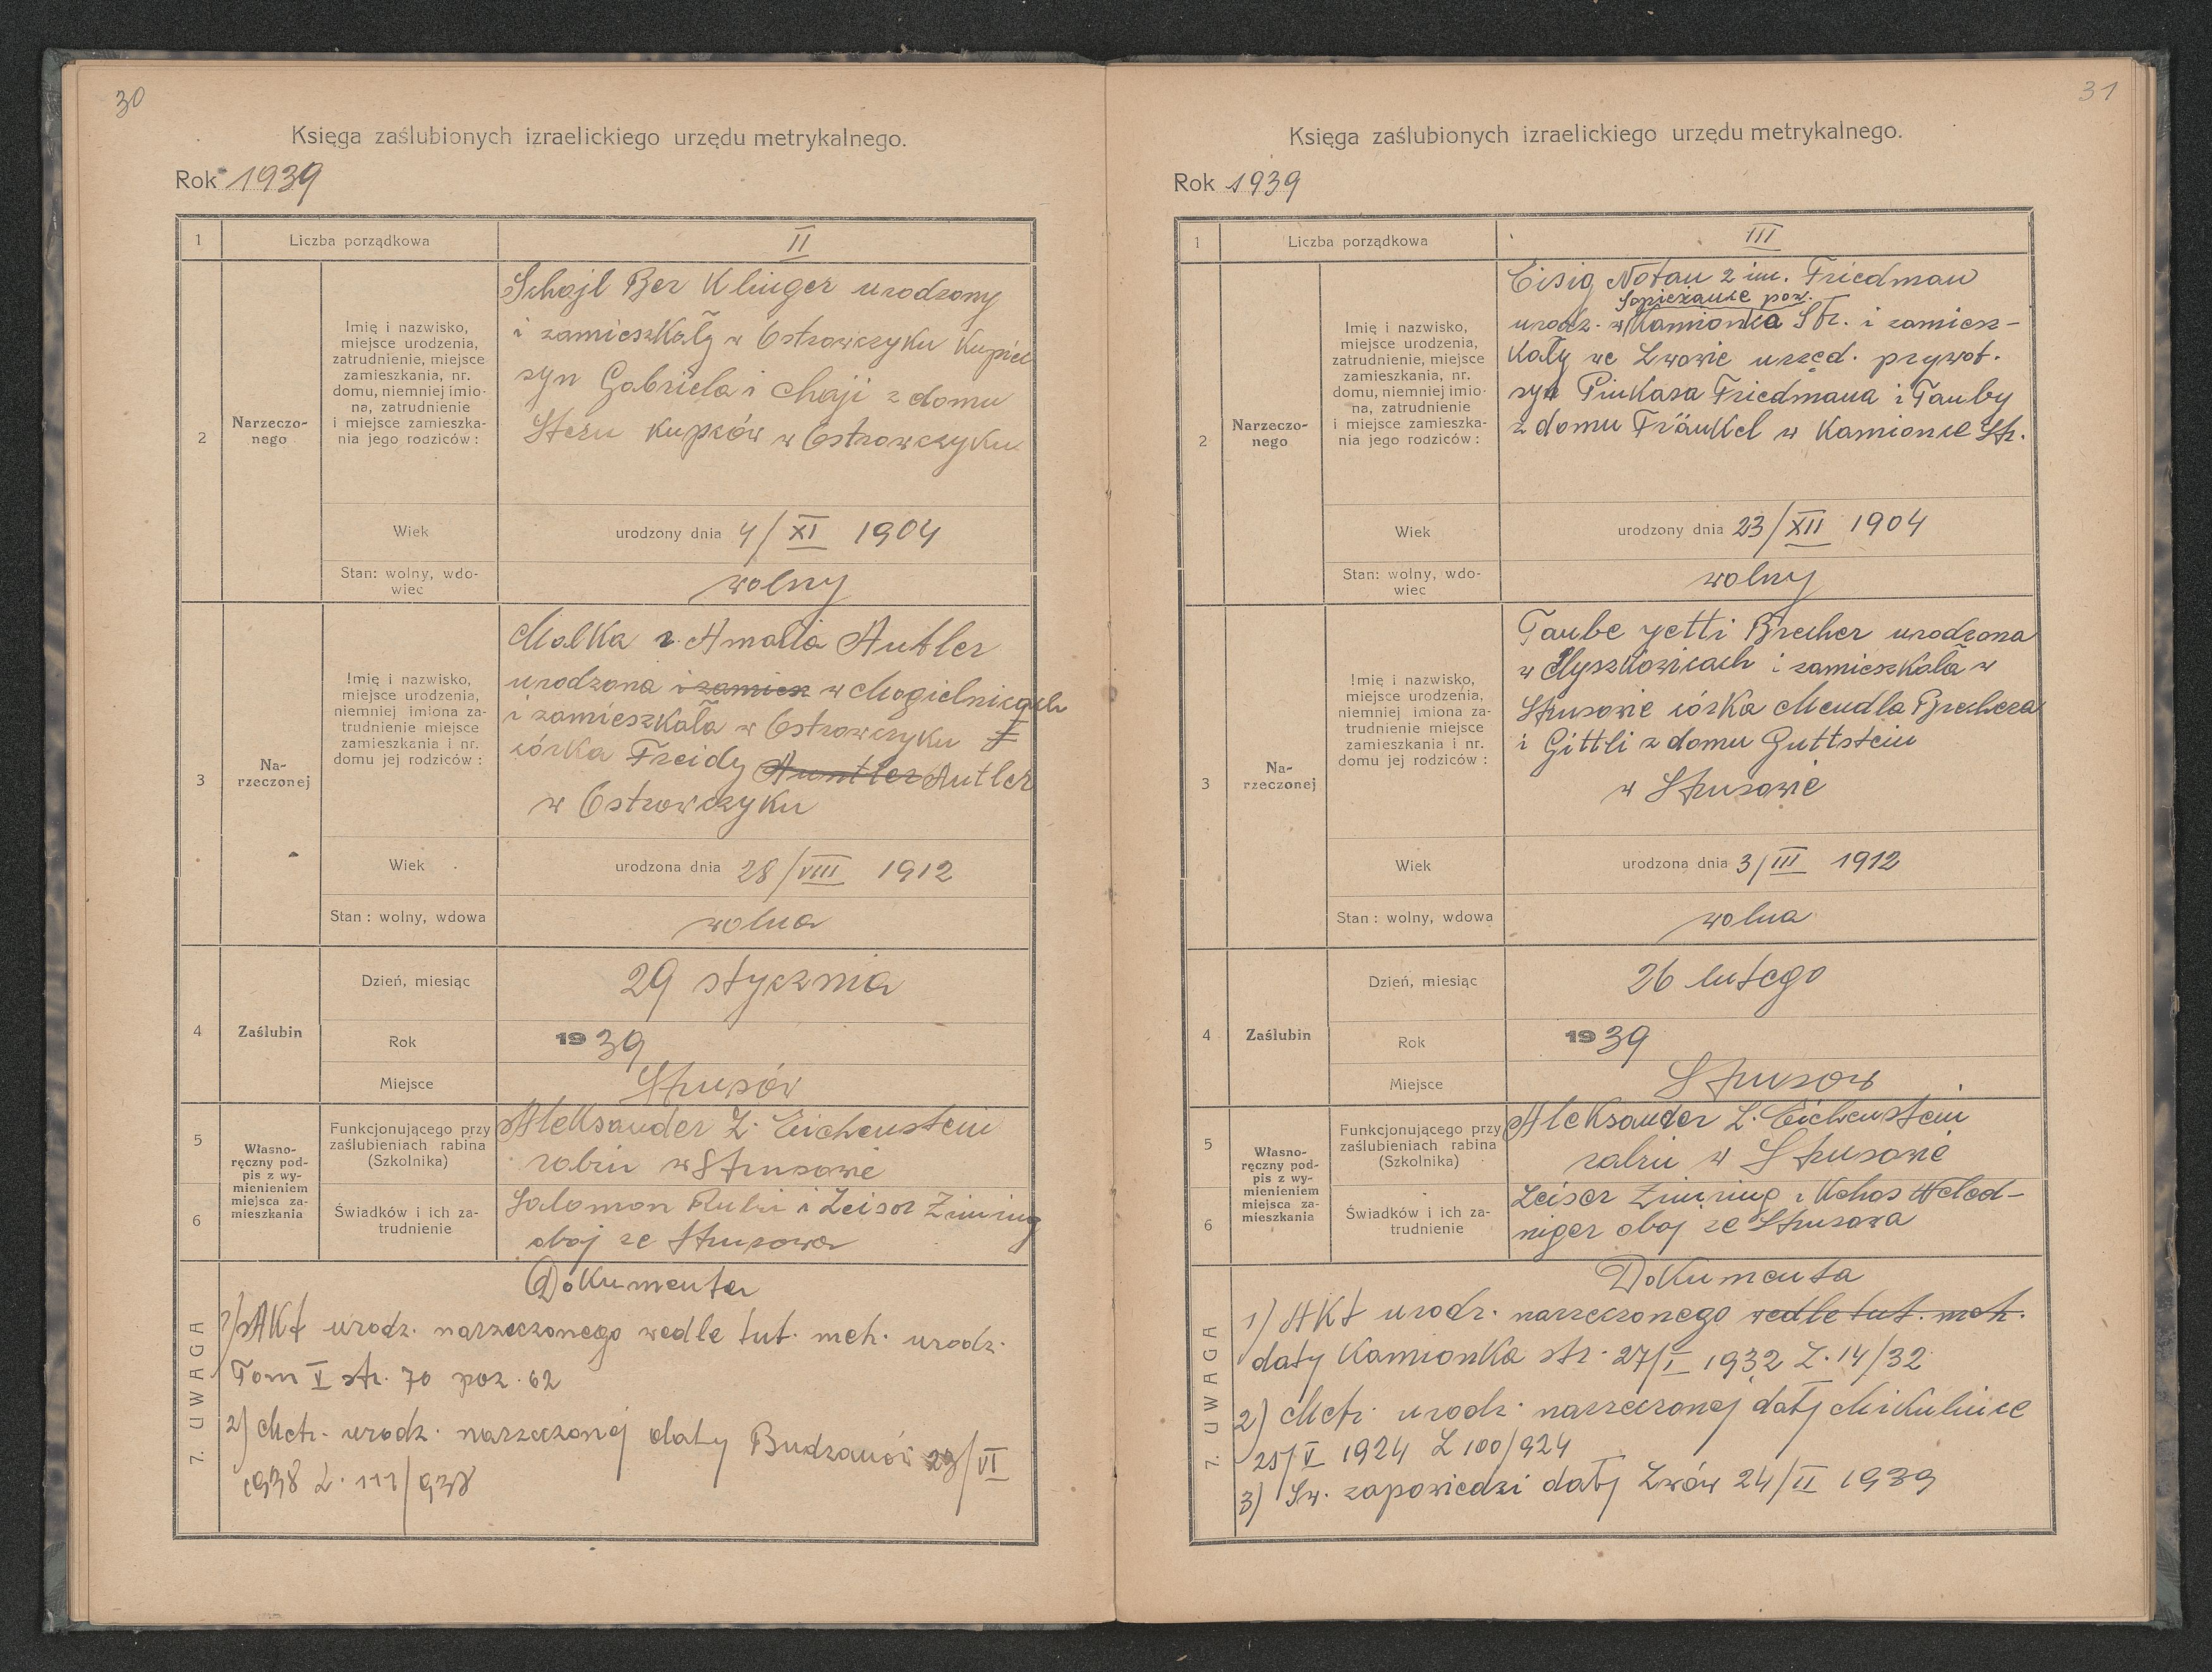 30
Księga zaślubionych izraelickiego urzędu metrykalnego.
Rok 1939
1
Liczba porządkowa
II
2
Narzeczo-
nego
Imię i nazwisko,
miejsce urodzenia,
zatrudnienie, miejsce
zamieszkania, nr.
domu, niemniej imio-
na, zatrudnienie
i miejsce zamieszka-
nia jego rodziców :
Schojl Ber Klinger urodzony
i zamieszkały w Ostrowczyku kupiec
syn Gabriela i Chaji z domu
Stern kupców w Ostrowczyku
Wiek
urodzony dnia 4/XI 1904
Stan: wolny, wdo-
wiec
wolny
3
Na-
rzeczonej
Imię i nazwisko,
miejsce urodzenia,
niemniej imiona za-
trudnienie miejsce
zamieszkania i nr.
domu jej rodziców :
Malka v. Amalia Autler
urodzona i zamiesz w Mogielnicach
i zamieszkała w Ostrowczyku
córka Freidy Auntler Autler
w Ostrowczyku
Wiek
urodzona dnia 28/VIII 1912
Stan : wolny, wdowa
wolna
4
Zaślubin
Dzień, miesiąc
29 stycznia
Rok
1939
Miejsce
Strusów
5
Własno-
ręczny pod-
pis z wy-
mienieniem
miejsca za-
mieszkania
Funkcjonującego przy
zaślubieniach rabina
(Szkolnika)
Aleksander Z. Eichenstein
rabin w Strusowie
6
Świadków i ich za-
trudnienie
Salomon Rubin i Leisor Zimring
oboj ze Strusowa
7. UWAGA
Dokumenta
1) Akt urodz. narzeczonego wedle tut. metr. urodz.
Tom V str. 70 poz. 62
2) Metr. urodz. narzeczonej daty Budzanów 23/VI
1938 L. 111/938
31
Księga zaślubionych izraelickiego urzędu metrykalnego.
Rok 1939
1
Liczba porządkowa
III
2
Narzeczo-
nego
Imię i nazwisko,
miejsce urodzenia,
zatrudnienie, miejsce
zamieszkania, nr.
domu, niemniej imio-
na, zatrudnienie
i miejsce zamieszka-
nia jego rodziców :
Eisig Notan 2 im. Friedman
Sapieżanie pow.
urodz. w Kamionka Str. i zamiesz-
kały we Lwowie urzęd. prywat.
syn Pinkasa Friedmana i Tauby
z domu Fränkel w Kamionce Str.
Wiek
urodzony dnia 23/XII 1904
Stan: wolny, wdo-
wiec
wolny
3
Na-
rzeczonej
Imię i nazwisko,
miejsce urodzenia,
niemniej imiona za-
trudnienie miejsce
zamieszkania i nr.
domu jej rodziców :
Taube Jetti Brecher urodzona
w Myszkowicach i zamieszkała w
Strusowie córka Mendla Brechera
i Gittli z domu Guttstein
w Strusowie
Wiek
urodzona dnia 3/III 1912
Stan : wolny, wdowa
wolna
4
Zaślubin
Dzień, miesiąc
26 lutego
Rok
1939
Miejsce
Strusow
5
Własno-
ręczny pod-
pis z wy-
mienieniem
miejsca za-
mieszkania
Funkcjonującego przy
zaślubieniach rabina
(Szkolnika)
Aleksander Z. Eichenstein
rabin w Strusowie
6
Świadków i ich za-
trudnienie
Leiser Zimring i
niger oboj ze Strusowa
7. UWAGA
Dokumenta
1) Akt urodz. narzeczonego wedle tut. metr.
daty Kamionka str. 27/I 1932 L. 14/32
2) Metr. urodz. narzeczonej daty Mikulińce
25/V 1924 L 100/924
3) Św. zapowiedzi daty Lwów 24/II 1939